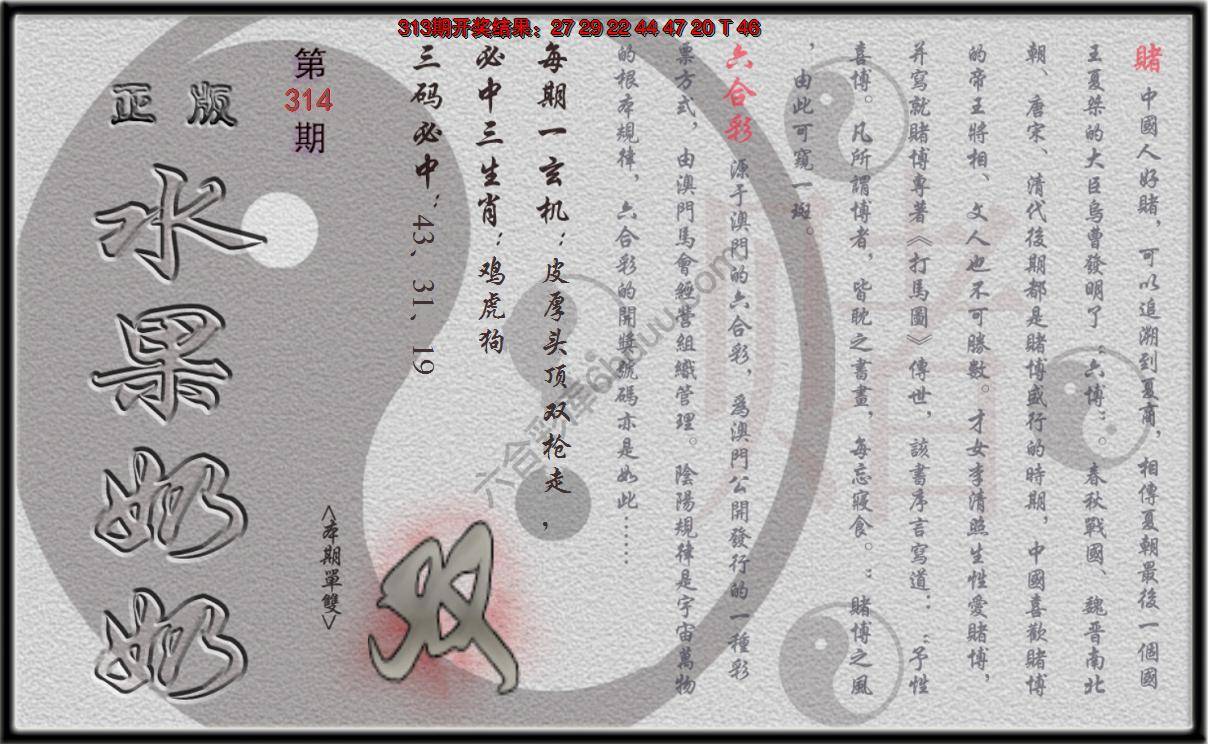 313期开奖结果：27 29 22 44 47 20 T 46
賭 中國人好賭，可以追溯到夏商，相傳夏朝最後一個國
王夏桀的大臣烏曹發明了“六博”。春秋戰國、魏晋南北
朝、唐宋、清代後期都是賭博盛行的時期，中國喜歡賭博
的帝王將相、文人也不可勝數。才女李清照生性愛賭博，
并寫就賭博專著《打馬圖》傳世，該書序言寫道：“予性
喜博。凡所謂博者，皆眈之書晝，每忘寢食。：賭博之風
，由此可窺一斑。
六合彩 源于澳門的六合彩，爲澳門公開發行的一種彩
票方式，由澳門馬會經營組織管理。陰陽規律是宇宙萬物
的根本規律，六合彩的開獎號碼亦是如此……
每期一玄机：皮厚头顶双抢走，
必中三生肖：鸡虎狗
三码必中：43、31、19
第
314
期
正版
水果奶奶
<本期單雙>
双
赌
六合彩库6hduu.com